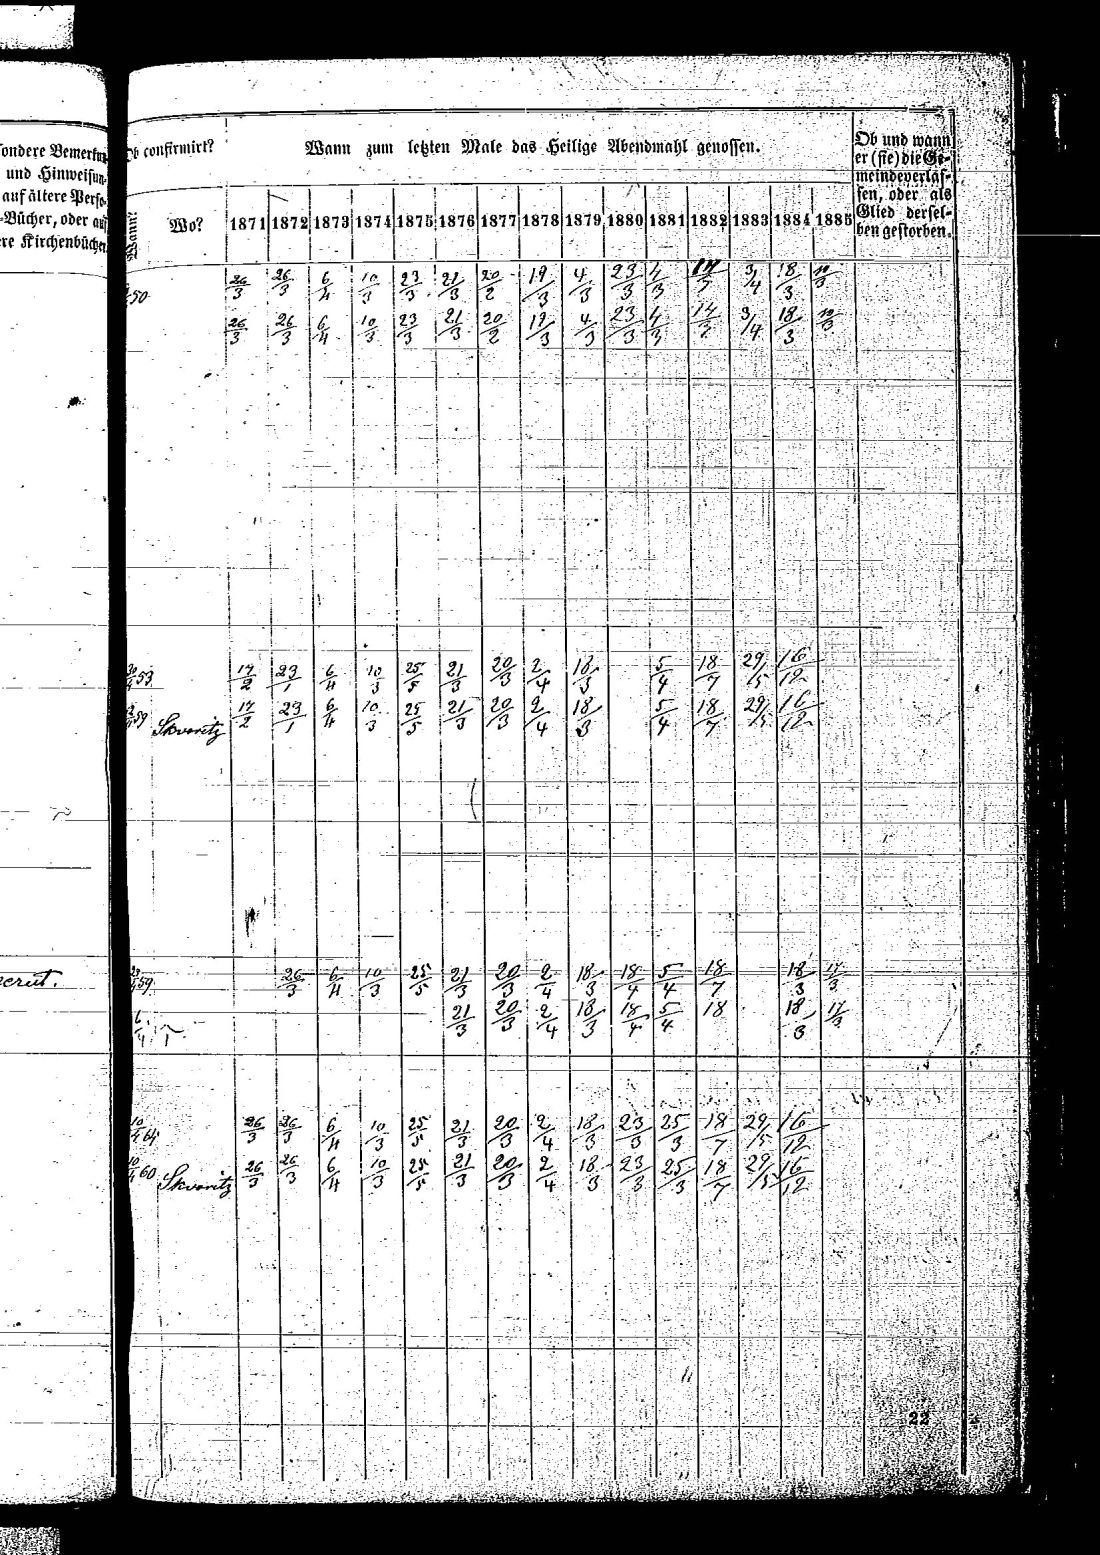 Ob confirmirt?
Wann zum letzten Male das Heilige Abendmahl genossen.
Ob und wann
er (sie) die Ge-
meinde verlas-
sen, oder als
Glied dersel-
ben gestorben.
sondere Bemerkun-
und Hinweisun-
auf ältere Perso-
-Bücher, oder auf
ere Kirchenbücher
Wann?
Wo?
1871 1872 1873 1874 1875 1876 1877 1878 1879 1880 1881 1882 1883 1884 1885
50 26/3 26/3 6/4 10/3 23/3 21/3 20/2 19/3 4/3 23/3 4/3 14/7 3/4 18/3 10/3
26/3 26/3 6/4 10/3 23/3 21/3 20/2 19/3 4/3 23/3 4/3 14/7 3/4 18/3 10/3
53 17/2 23/1 6/4 10/3 25/5 21/3 20/3 2/4 18/3 5/4 18/7 29/5 16/12
59 Skworitz 17/2 23/1 6/4 10/3 25/5 21/3 20/3 2/4 18/3 5/4 18/7 29/5 16/12
59 26/3 6/4 10/3 25/5 21/3 20/3 2/4 18/3 18/4 5/4 18/7 18/3 17/3
21/3 20/3 2/4 18/3 18/4 5/4 18 18/3 17/3
10/4 64 26/3 26/3 6/4 10/3 25/5 21/3 20/3 2/4 18/3 23/3 25/3 18/7 29/5 16/12
10/4 60 Skworitz 26/3 26/3 6/4 10/3 25/5 21/3 20/3 2/4 18/3 23/3 25/3 18/7 29/5 16/12
22